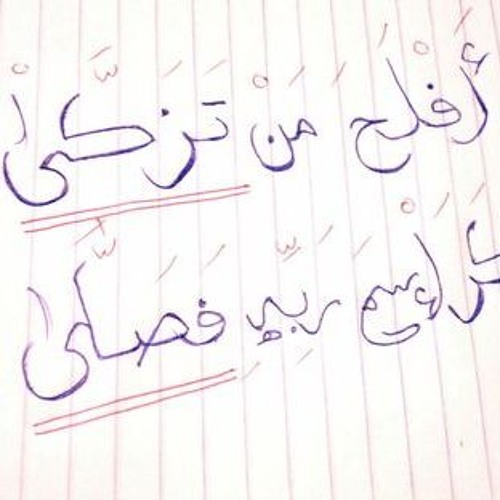 أَفْلَحَ مَنْ تَزَكَّىٰ
كَرَ اسْمَ رَبِّهِ فَصَلَّىٰ